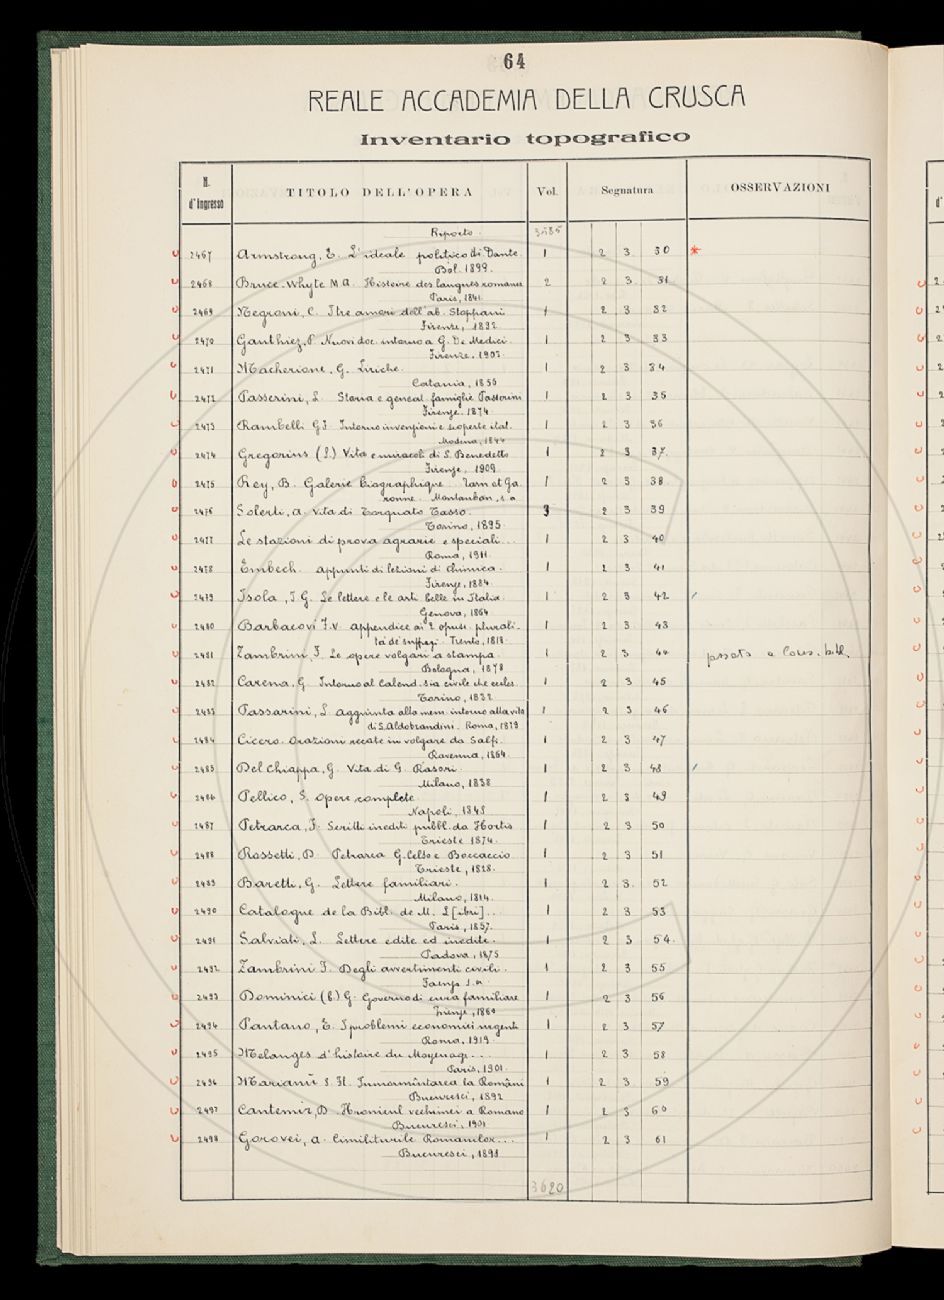 64
REALE ACCADEMIA DELLA CRUSCA
Inventario topografico
N. d'Ingresso TITOLO DELL'OPERA Vol. Segnatura OSSERVAZIONI
Riporto 3585
2467 Armstrong, E. L'ideale politico di Dante 1 2 3 30 *
Bol. 1899.
2468 Bruce-Whyte M A. Histoire des langues romanes 2 2 3 31
Paris, 1841.
2469 Negroni, C. I tre amori dell'ab. Stoppani 1 2 3 32
Firenze, 1892
2470 Gauthiez, P. Nuovi doc. intorno a G. De Medici. 1 2 3 33
Firenze. 1903.
2471 Macherione, G. Liriche. 1 2 3 34
Catania, 1855
2472 Passerini, L. Storia e geneal. famiglie Pasterini 1 2 3 35
Firenze. 1874
2473 Rambelli G F. Intorno invenzioni e scoperte ital. 1 2 3 36
Modena, 1844
2474 Gregorius (S.) Vita e miracoli di S. Benedetto 1 2 3 37.
Firenze, 1909.
2475 Rey, B. Galerie biographique. Tarn et Ga 1 2 3 38
ronne. Montauban, s. a
2476 Solerti, A. Vita di Torquato Tasso. 3 2 3 39
Torino, 1895.
2477 Le stazioni di prova agrarie e speciali... 1 2 3 40
Roma, 1911.
2478 Embech. Appunti di lezioni di Chimica. 1 2 3 41
Firenze, 1884.
2479 Isola, I G. Le lettere e le arti belle in Italia. 1 2 3 42
Genova, 1864
2480 Barbacovi F. V. appendice ai 2 opusc. plurali- 1 2 3 43
tà de' suffragi. Trento, 1818.
2481 Zambrini, F. Le opere volgari a stampa. 1 2 3 44 passato a Cons. bibl.
Bologna, 1878
2482 Carena, G. Intorno al Calend. sia civile che eccles. 1 2 3 45
Torino, 1832
2483 Passarini, L. aggiunta alla mem. intorno alla vita 1 2 3 46
di S. Aldobrandini. Roma, 1879
2484 Cicero. Orazioni recate in volgare da Salfi. 1 2 3 47
Ravenna, 1864.
2485 Del Chiappa, G. Vita di G. Rasori. 1 2 3 48
Milano, 1838
2486 Pellico, S. Opere complete 1 2 3 49
Napoli, 1848
2487 Petrarca, F. Scritti inediti pubbl. da Hortis 1 2 3 50
Trieste 1874.
2488 Rossetti, D. Petrarca G. Celso e Boccaccio 1 2 3 51
Trieste, 1828.
2489 Baretti, G. Lettere familiari. 1 2 3. 52
Milano, 1814.
2490 Catalogue de la Bibl. de M. L[ibri]... 1 2 3 53
Paris, 1857.
2491 Salviati, L. Lettere edite ed inedite. 1 2 3 54.
Padova, 1875
2492 Zambrini F. Degli avvertimenti civili. 1 2 3 55
Faenza s. a.
2493 Dominici (b.) G. Governo di cura familiare 1 2 3 56
Firenze, 1860
2494 Pantano, E. I problemi economici urgenti 1 2 3 57
Roma, 1919.
2495 Mélanges d'histoire du Moyen age... 1 2 3 58
Paris, 1901.
2496 Marianu S. Fl. Inmormîntarea la Români 1 2 3 59
Bucuresci, 1892
2497 Cantemir, D. Hronicul vechimei a Romano 1 2 3 60
Bucuresci, 1901
2498 Gorovei, A. Cimiliturile Romanilor... 1 2 3 61
Bucuresci, 1898
3620